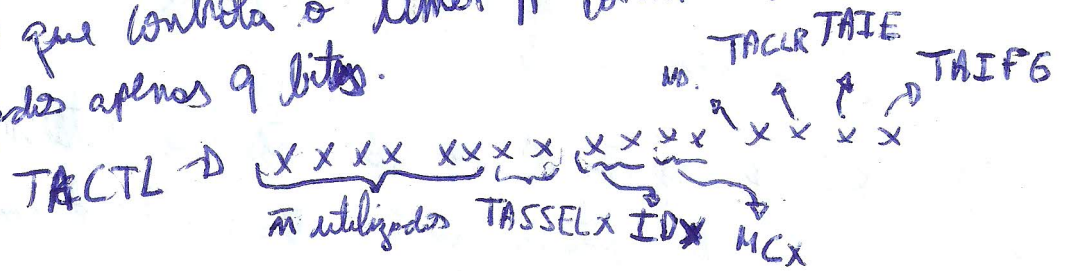 que controla o timer A
dos apenas 9 bits.
TACLR TAIE
TAIFG
TACTL → XXXX XXXX XXXX XXXX
ñ utilizados TASSELx IDx MCx